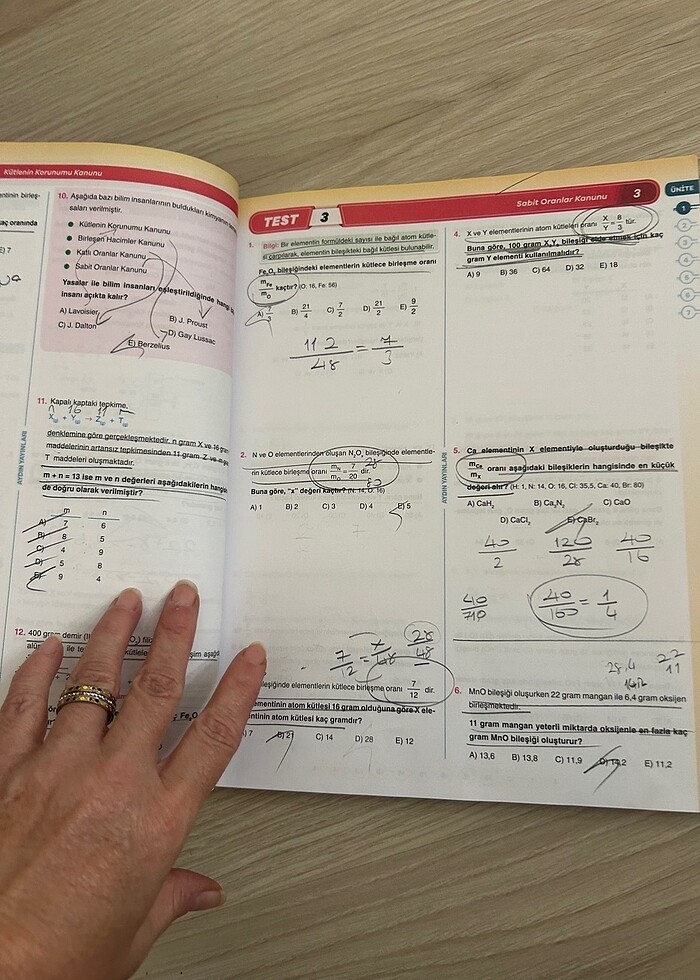 Kütlenin Korunumu Kanunu
10. Aşağıda bazı bilim insanlarının buldukları kimyanın
saları verilmiştir.
Kütlenin Korunumu Kanunu
Birleşen Hacimler Kanunu
Katlı Oranlar Kanunu
Sabit Oranlar Kanunu
Yasalar ile bilim insanları eşleştirildiğinde hangi
insanı açıkta kalır?
A) Lavoisier
B) J. Proust
C) J. Dalton
D) Gay Lussac
E) Berzelius
11. Kapalı kaptaki tepkime,
n 16 11
denklemine göre gerçekleşmektedir. n gram X ve 16 gram
maddelerinin artansız tepkimesinden 11 gram Z ve m
T maddeleri oluşmaktadır.
m + n = 13 ise m ve n değerleri aşağıdakilerin
de doğru olarak verilmiştir?
m n
A) 7 6
B) 8 5
C) 4 9
D) 5 8
E) 9 4
12. 400 gram demir
AYDIN YAYINLARI
TEST 3
Sabit Oranlar Kanunu 3
ÜNİTE
1. Bilgi: Bir elementin formüldeki sayısı ile bağıl atom kütle-
si çarpılarak, elementin bileşikteki bağıl kütlesi bulunabilir.
Fe₂O₃ bileşiğindeki elementlerin kütlece birleşme oranı
m_Fe/m_O kaçtır? (O: 16, Fe: 56)
A) 7/3 B) 21/4 C) 7/2 D) 21/2 E) 9/2
112/48 = 7/3
2. N ve O elementlerinden oluşan N₂Oₓ bileğinde elementle-
rin kütlece birleşme oranı m_N/m_O = 7/20 dir. 28/80
Buna göre, "x" değeri kaçtır? (N: 14, O: 16)
A) 1 B) 2 C) 3 D) 4 E) 5
28/48
leşiğinde elementlerin kütlece birleşme oranı 7/12 dir.
ementinin atom kütlesi 16 gram olduğuna göre X ele-
entinin atom kütlesi kaç gramdır?
) 7 B) 21 C) 14 D) 28 E) 12
AYDIN YAYINLARI
4. X ve Y elementlerinin atom kütleleri oranı X/Y = 8/3 tür.
Buna göre, 100 gram X₂Y₃ bileşiği elde etmek için kaç
gram Y elementi kullanılmalıdır?
A) 9 B) 36 C) 64 D) 32 E) 18
5. Ca elementinin X elementiyle oluşturduğu bileşikte
m_Ca/m_X oranı aşağıdaki bileşiklerin hangisinde en küçük
değeri alır? (H: 1, N: 14, O: 16, Cl: 35,5, Ca: 40, Br: 80)
A) CaH₂ B) Ca₃N₂ C) CaO
D) CaCl₂ E) CaBr₂
40/2 120/28 40/16
40/160 = 1/4
28,4 22/11
14,2
6. MnO bileşiği oluşurken 22 gram mangan ile 6,4 gram oksijen
birleşmektedir.
11 gram mangan yeterli miktarda oksijenle en fazla kaç
gram MnO bileşiği oluşturur?
A) 13,6 B) 13,8 C) 11,9 D) 14,2 E) 11,2